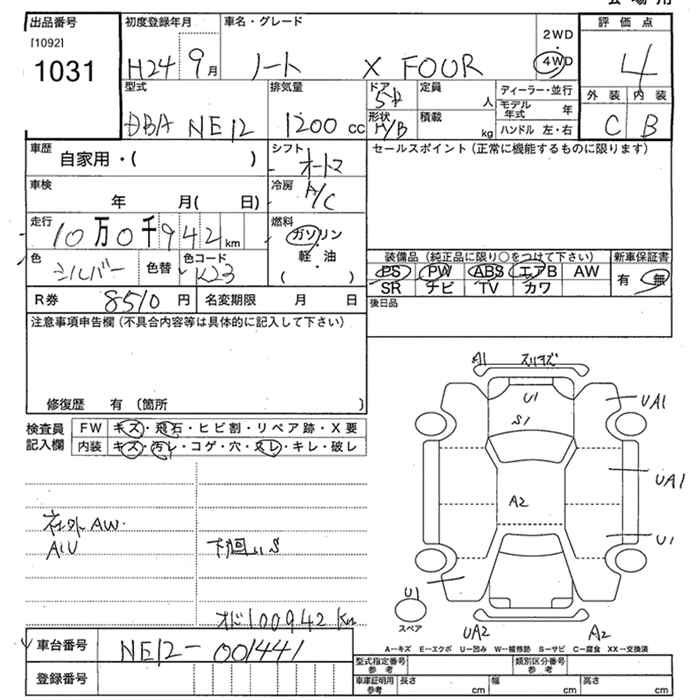 会場用
出品番号 初度登録年月 車名・グレード 2WD 評価点
[1092]
1031 H24 9月 ノート X FOUR 4WD 4
型式 排気量 ドア 定員 人 ディーラー・並行 外装 内装
DBA NE12 1200cc 5D モデル年式 年
形状 H/B 積載 kg ハンドル 左・右 C B
車歴 シフト セールスポイント(正常に機能するものに限ります)
自家用・( ) オートマ
車検 冷房
年 月( 日) A/C
走行 燃料
10万0千942km ガソリン
軽・油
( )
色 色替 色コード 装備品(純正品に限り○をつけて下さい) 新車保証書
シルバー K23 PS PW ABS エアB AW 有 無
SR ナビ TV カワ
R券 8510円 名変期限 月 日 後日品
注意事項申告欄(不具合内容等は具体的に記入して下さい)
修復歴 有(箇所 )
検査員記入欄 FW キズ・飛石・ヒビ割・リペア跡・X要
内装 キズ・汚レ・コゲ・穴・スレ・キレ・破レ
A1 スリキズ
U1
S1
UA1
UA1
A2
U1
U1
スペア
UA2 A2
社外AW.
A1U 下廻りS
オド100942Km
A-キズ E-エクボ U-凹み W-補修跡 S-サビ C-腐食 XX-交換済
車台番号 NE12-001441
型式指定番号 参考 類別区分番号 参考
登録番号 車庫証明用 参考 長さ cm 幅 cm 高さ cm